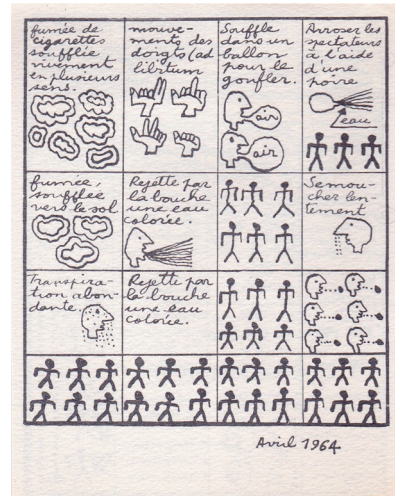 fumée de
cigarettes
soufflée
vivement
en plusieurs
sens.
mouve-
ments des
doigts (ad
libitum
Souffle
dans un
ballon
pour le
gonfler.
air
air
Arroser les
spectateurs
à l'aide
d'une
poire
eau
fumée,
soufflée
vers le sol
Rejette par
la bouche
une eau
colorée.
Se mou-
cher len-
tement
Transpira-
tion abon-
dante.
Rejette par
la bouche
une eau
colorée.
Avril 1964